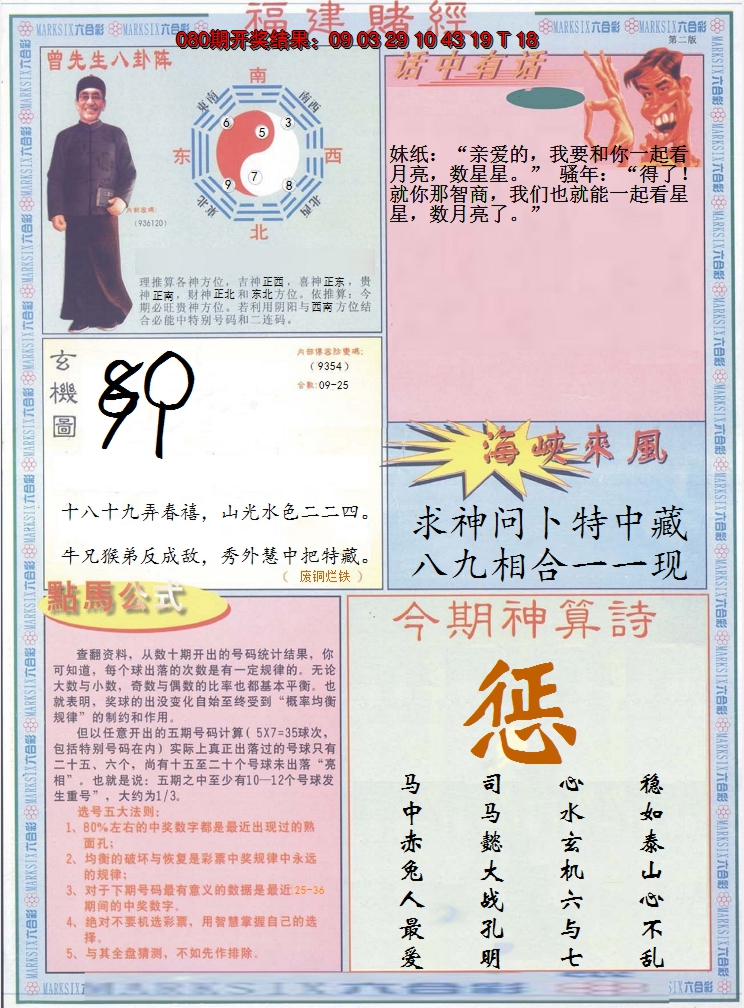 福建賭經
080期开奖结果：09 03 29 10 43 19 T 18
MARKSIX六合彩
第二版
曾先生八卦阵
南
東南
南西
6
5
3
东
西
9
7
8
東北
北西
北
内部密碼：
（936120）
理推算各神方位，吉神正西，喜神正东，贵
神正南，财神正北和东北方位。依推算：今
期必旺贵神方位。若利用阴阳与西南方位结
合必能中特别号码和二连码。
话中有话
妹纸：“亲爱的，我要和你一起看
月亮，数星星。” 骚年：“得了！
就你那智商，我们也就能一起看星
星，数月亮了。”
玄機圖
（9354）
合数：09-25
十八十九弄春禧，山光水色二二四。
牛兄猴弟反成敌，秀外慧中把特藏。
（ 废铜烂铁 ）
海峽來風
求神问卜特中藏
八九相合一一现
點馬公式
查翻资料，从数十期开出的号码统计结果，你
可知道，每个球出落的次数是有一定规律的。无论
大数与小数，奇数与偶数的比率也都基本平衡。也
就表明，奖球的出没变化自始至终受到“概率均衡
规律”的制约和作用。
但以任意开出的五期号码计算（5X7=35球次，
包括特别号码在内）实际上真正出落过的号球只有
二十五、六个，尚有十五至二十个号球未出落“亮
相”。也就是说：五期之中至少有10—12个号球发
生重号”，大约为1/3。
选号五大法则：
1、80%左右的中奖数字都是最近出现过的熟
面孔；
2、均衡的破坏与恢复是彩票中奖规律中永远
的规律；
3、对于下期号码最有意义的数据是最近25-36
期间的中奖数字。
4、绝对不要机选彩票，用智慧掌握自己的选
择。
5、与其全盘猜测，不如先作排除。
今期神算詩
惩
马中赤兔人最爱
司马懿大战孔明
心水玄机六与七
稳如泰山心不乱